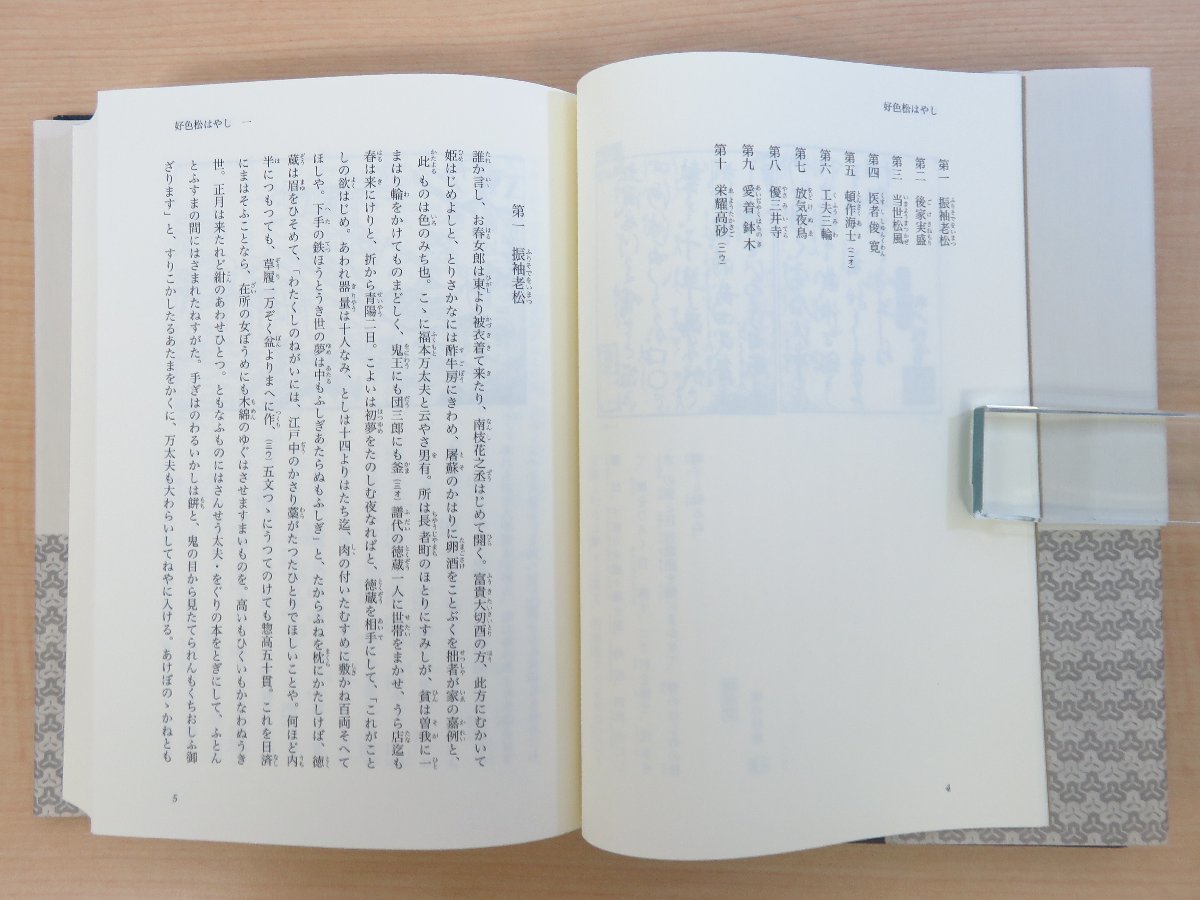 好色松はやし
第一　振袖老松
第二　後家実盛
第三　当世松風
第四　医者俊寛
第五　頓作海士(二オ)
第六　工夫三輪
第七　放気夜鳥
第八　優三井寺
第九　愛着鉢木
第十　栄耀高砂(二ウ)
4
好色松はやし　一
第一　振袖老松
誰か言し、お春女郎は東より被衣着て来たり、南枝花之丞はじめて開く。富貴大切酉の方、此方にむかいて
姫はじめよしと、とりさかなには酢牛房にきわめ、屠蘇のかはりに卵酒をことぶくを拙者が家の嘉例と、
此ものは色のみち也。こゝに福本万太夫と云やさ男有。所は長者町のほとりにすみしが、貧は曽我に一
まはり輪をかけてものまどしく、鬼王にも団三郎にも釜(三オ)譜代の徳蔵一人に世帯をまかせ、うら店迄も
春は来にけりと、折から青陽二日。こよいは初夢をたのしむ夜なればと、徳蔵を相手にして、「これがこと
しの欲はじめ。あわれ器量は十人なみ、としは十四よりはたち迄、肉の付いたむすめに敷かね百両そへて
ほしや。下手の鉄ほうとうき世の夢は中もふしぎあたらぬもふしぎ」と、たからふねを枕にかたしけば、徳
蔵は眉をひそめて、「わたくしのねがいには、江戸中のかさり藁がたつたひとりでほしいことや。何ほど内
半につもつても、草履一万ぞく盆よりまへに作、(三ウ)五文つゝにうつてのけても惣高五十貫。これを日済
にまはそふことなら、在所の女ぼうめにも木綿のゆぐはさせますまいものを。高いもひくいもかなわぬうき
世。正月は来たれど紺のあわせひとつ。ともなふものにはさんせう太夫・をぐりの本をとぎにして、ふとん
とふすまの間にはさまれたねすがた。手ぎはのわるいかしは餅と、鬼の目から見たてられんもくちおしふ御
ざります」と、すりこかしたるあたまをかくに、万太夫も大わらいしてねやに入ける。あけぼのゝかねとも
5